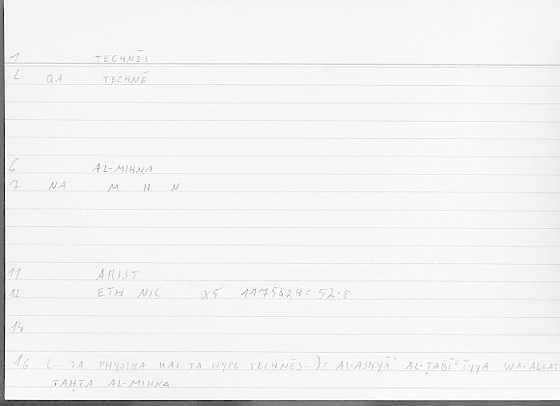 1 TECHNĒS
2 QA TECHNĒ
6 AL-MIHNA
7 NA M H N
11 ARIST
12 ETH NIC X5 1175A24 = 52.8
14
16 (– TA PHYSIKA KAI TA HYPO TECHNĒS –) = AL-ASHYĀʾ AL-ṬABĪʿĪYYA WA-ALLAT
TAḤTA AL-MIHNA